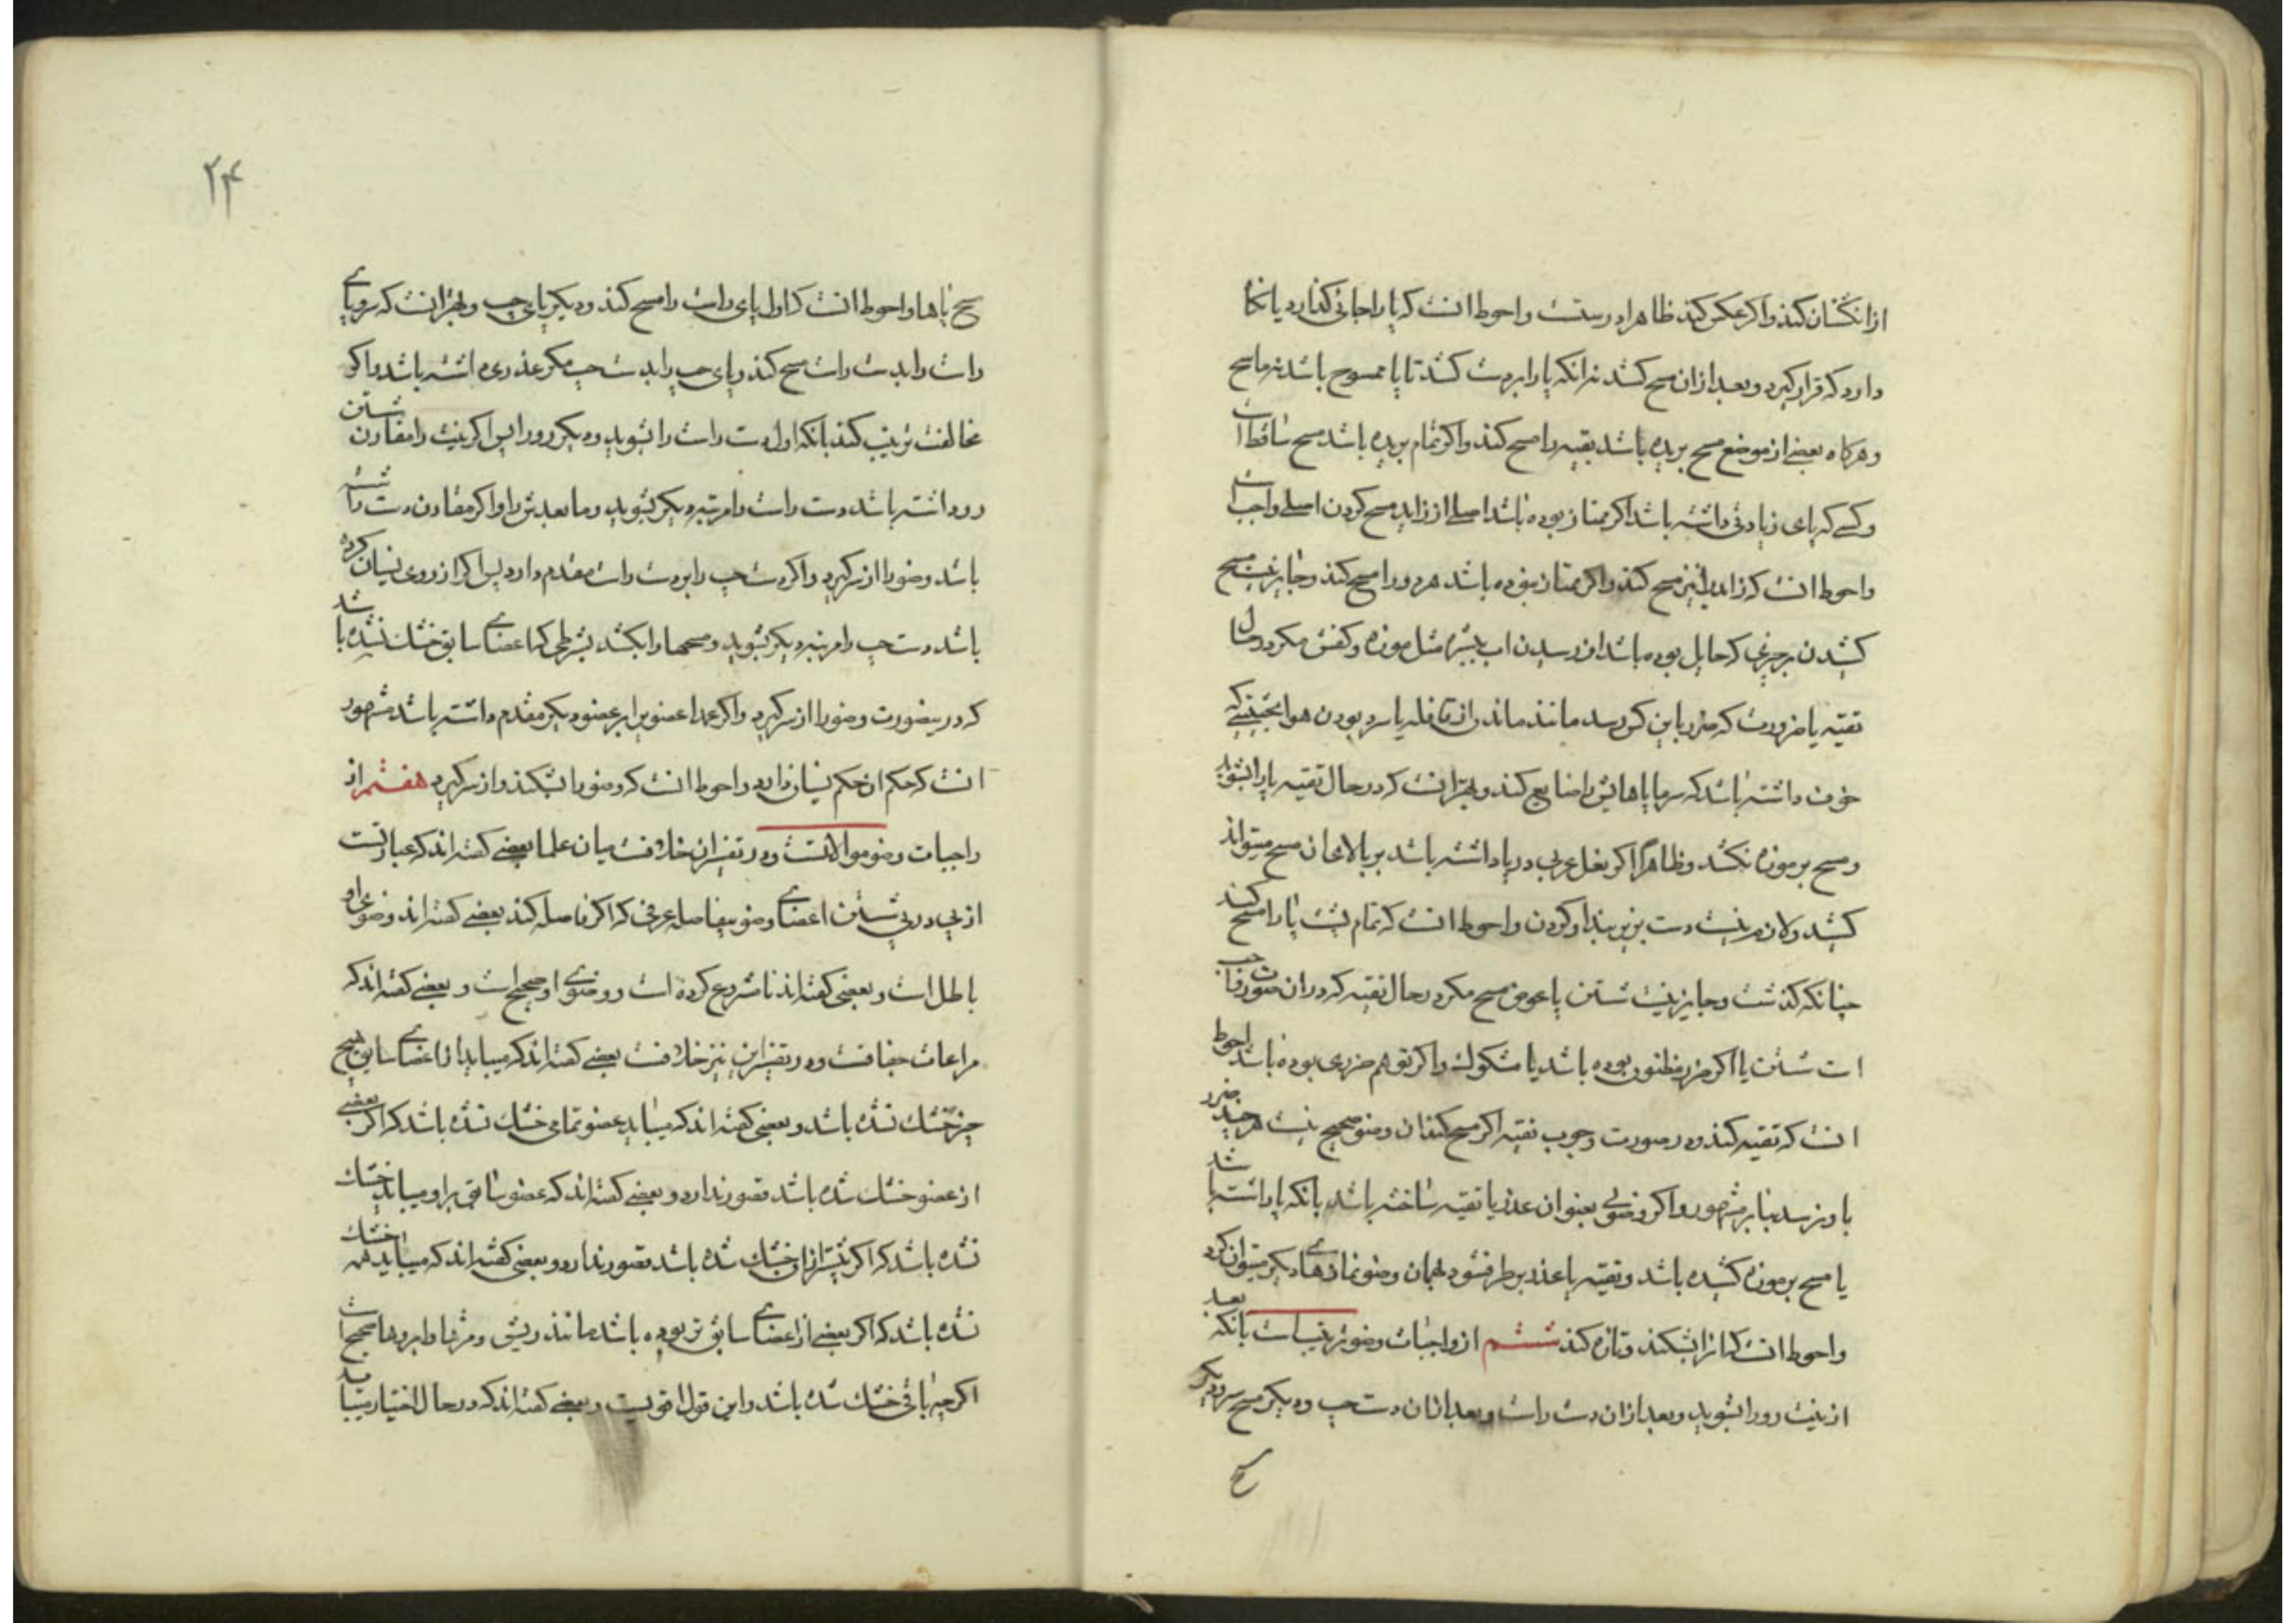 از انگشتان کند و اگر عکس کند ظاهرا درستست و احوط انست که پا را جائی کذارد یا نکاه
دارد که قرار کیرد و بعد از ان مسح کشد نه انکه پا را بر دست کشد تا پا ممسوح باشد نه ماسح
و هرکاه بعضی از موضع مسح بریده باشد بقیه را مسح کند و اکر تمام بریده باشد مسح ساقط است
و کسی که پای زیادتی داشته باشد اکر ممتاز بوده باشد اصلی از زاید مسح کردن اصلی واجب است
و احوط انست که زاید را نیز مسح کند و اکر ممتاز نبوده باشد هر دو را مسح کند و جایز نیست مسح
کشیدن بر چیزی که حایل بوده باشد از رسیدن اب ببشره مثل موزه و کفش مکر در حال
تقیه یا ضرورت که ضرر باین کس رسد مانند ماندن از قافله یا سرد بودن هوا بحیثیتی که
خوف داشته باشد که سرما پاهایش را ضایع کند و بهتر انست که در حال تقیه پا را بشوید
و مسح بر موزه نکشد و ظاهرا اکر نعل عربی در پا داشته باشد بر بالای ان مسح میتواند
کشید و لازم نیست دست بزیر بند او کردن و احوط انست که تمام پشت پا را مسح کند
چنانکه کذشت و جایز نیست شستن پا عوض مسح مکر در حال تقیه که در ان صورت واجب
است شستن پا اکر ضرر مظنون بوده باشد یا مشکوک و اکر توهم ضرری بوده باشد احوط
انست که تقیه کند و در صورت وجوب تقیه اکر مسح کند ان وضو صحیح نیست هر چند ضرر
باو نرسد بنابر مشهور و اکر وضوئی بعنوان عذر یا تقیه ساخته باشد بانکه پا را شسته باشد
یا مسح بر موزه کشیده باشد و تقیه یا عذر بر طرف شود بهمان وضو نمازهای دیکر میتوان کرد
و احوط انست که انرا بشکند و تازه کند ششم از واجبات وضو ترتیب است بانکه بعد
از نیت رو را بشوید و بعد از ان دست راست و بعد از ان دست چپ و دیکر مسح سر و دیکر
مسح
۲۴
مسح پاها و احوط انست که اول پای راست را مسح کند و دیکر پای چپ و بهتر انست که سر و پای
راست را بدست راست مسح کند و پای چپ را بدست چپ مکر عذری داشته باشد و اکر
مخالفت ترتیب کند بانکه اول دست راست را بشوید و دیکر رو را پس اکر نیت را مقارن شستن
رو داشته باشد دست راست را مرتبه دیکر بشوید و ما بعدش را و اکر مقارن دست راست
باشد وضو را از سر کیرد و اکر دست چپ را بر دست راست مقدم دارد پس اکر از روی نسیان کرده
باشد دست چپ را مرتبه دیکر بشوید و مسحها را بکشد بشرطی که اعضای سابق خشک نشده باشد
که در ینصورت وضو را از سر کیرد و اکر عمدا عضوی را بر عضو دیکر مقدم داشته باشد مشهور
انست که حکم ان حکم نسیان دارد و احوط انست که وضو را بشکند و از سر کیرد هفتم از
واجبات وضو موالاتست و در تفسیر ان خلافست میان علما بعضی کفته اند که عبارتست
از پی در پی شستن اعضای وضو بیفاصله عرفی که اکر فاصله کند بعضی کفته اند وضوی او
باطل است و بعضی کفته اند نامشروع کرده است و وضوی او صحیح است و بعضی کفته اند که
مراعات جفافست و در تفسیر این نیز خلافست بعضی کفته اند که میباید از اعضای سابق هیچ
چیز خشک نشده باشد و بعضی کفته اند که میباید عضو تمامی خشک نشده باشد که اکر بعضی
از عضو خشک شده باشد قصور ندارد و بعضی کفته اند که عضو سابق بر او میباید خشک
نشده باشد که اکر پیشتر از او خشک شده باشد قصور ندارد و بعضی کفته اند که میباید همه خشک
نشده باشد که اکر بعضی از اعضای سابق تر بوده باشد مانند ریش و مژها و ابروها صحیح است
اکر چه باقی خشک شده باشد و این قول اقویست و بعضی کفته اند که در حال اختیار میباید